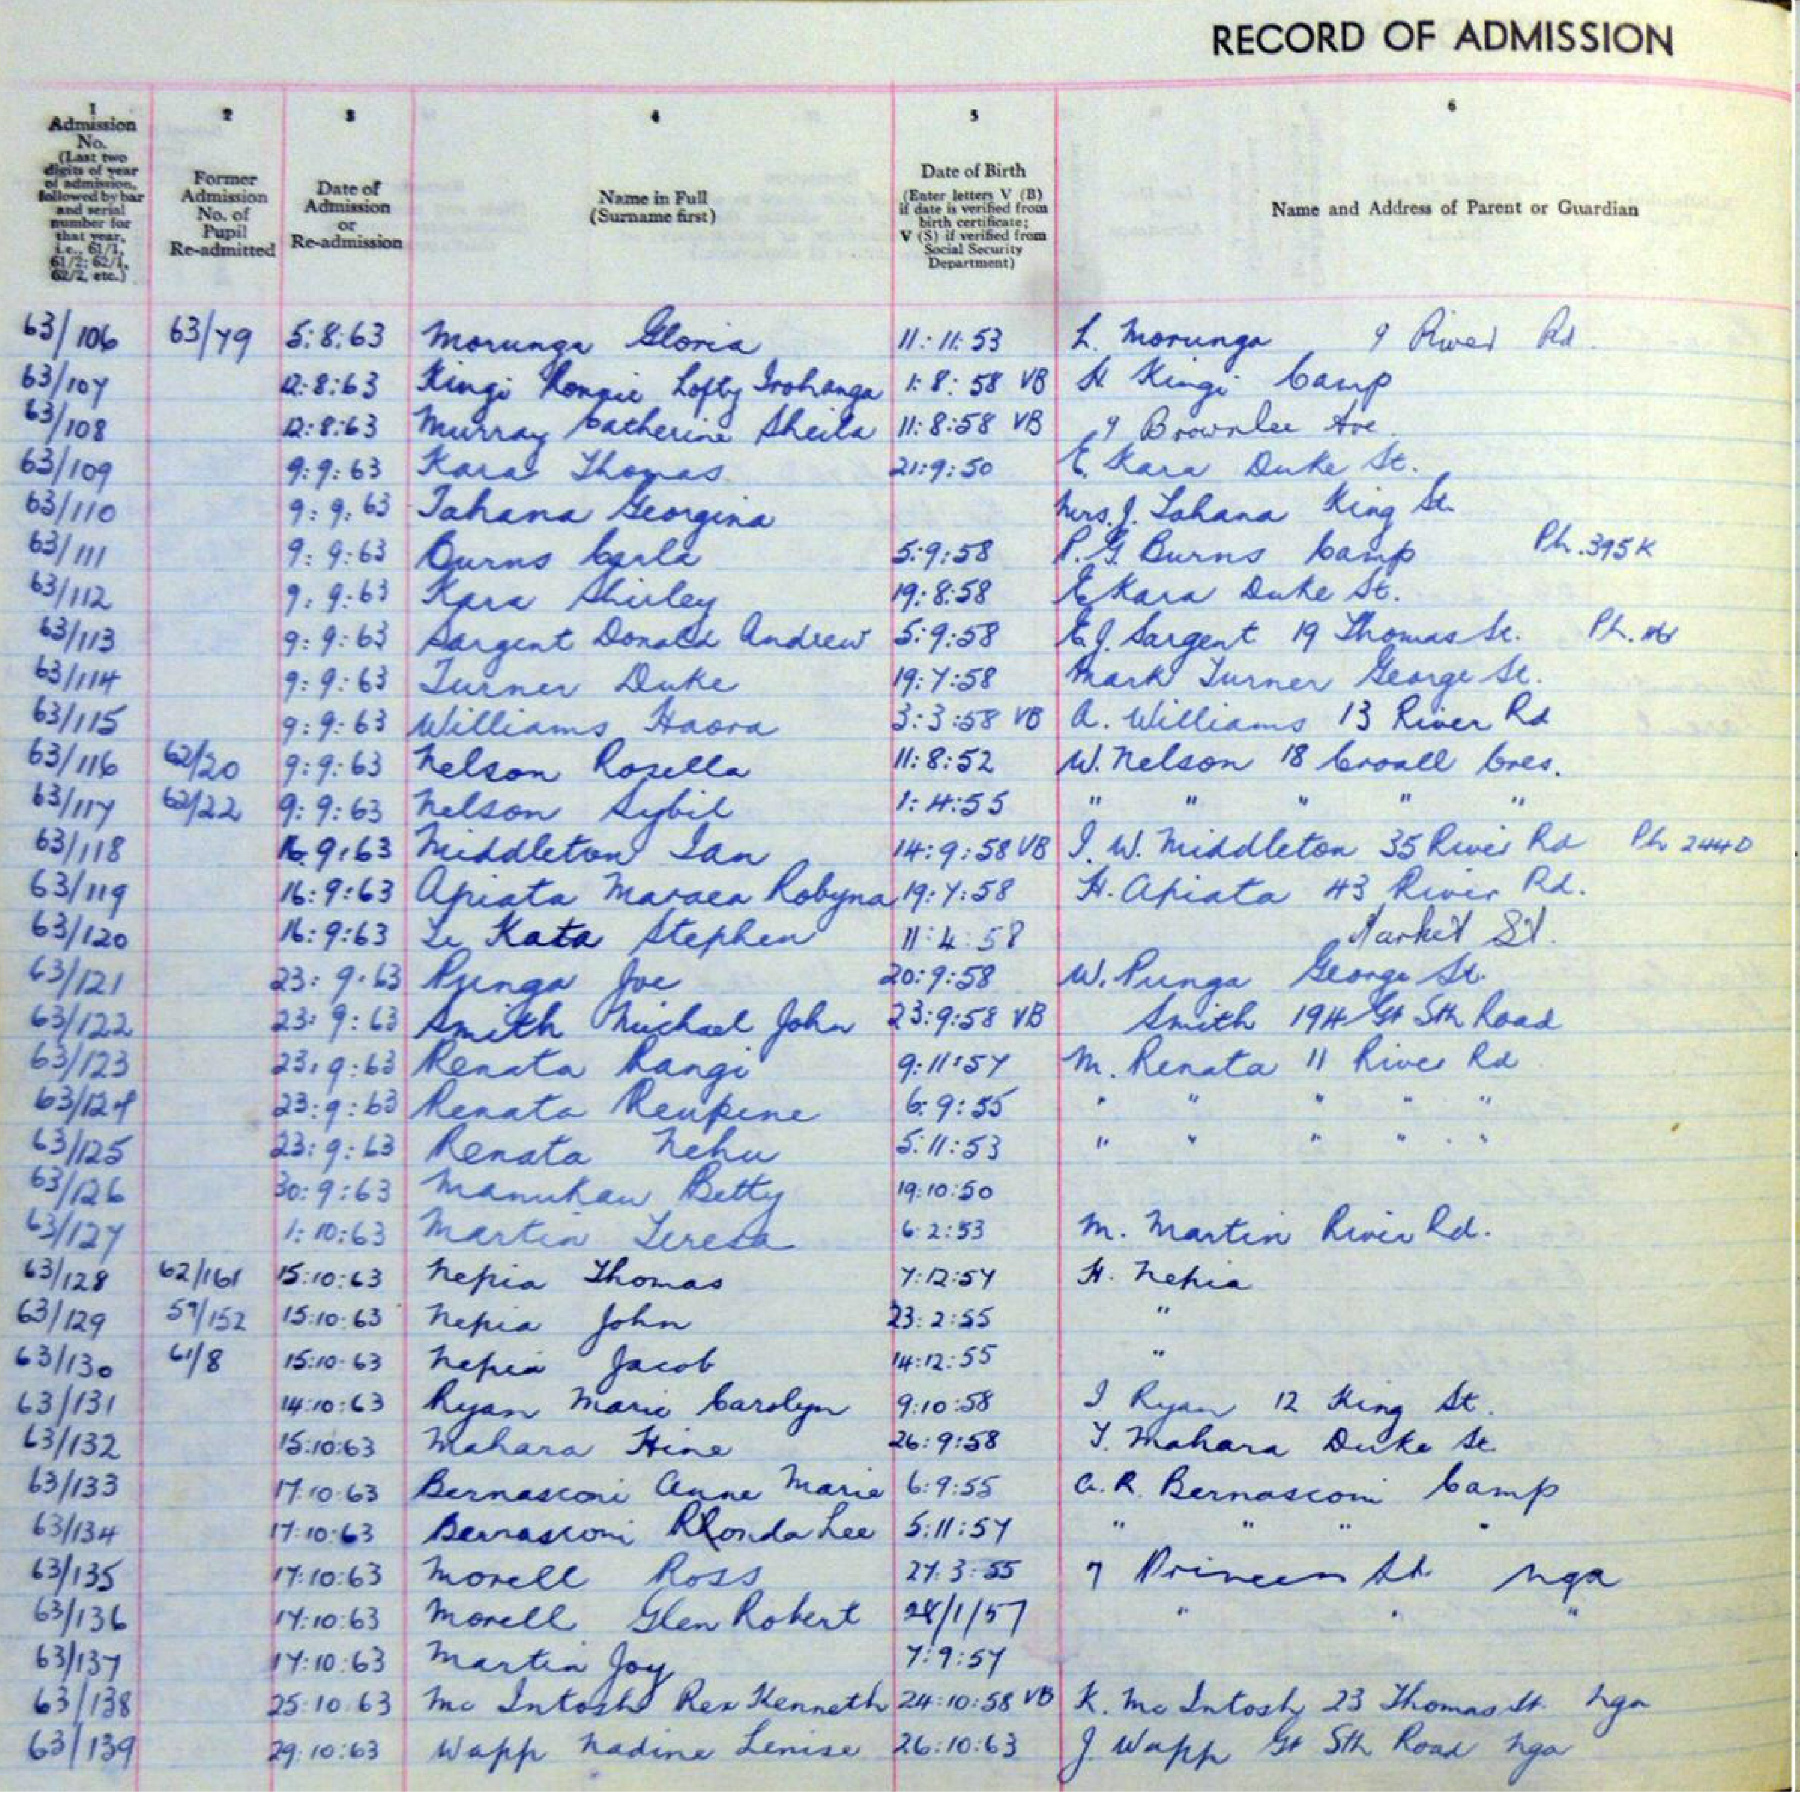 RECORD OF ADMISSION
1 2 3 4 5 6
Admission No. (Last two digits of year of admission, followed by bar and serial number for that year, i.e., 61/1, 61/2; 62/1, 62/2, etc.)
Former Admission No. of Pupil Re-admitted
Date of Admission or Re-admission
Name in Full (Surname first)
Date of Birth (Enter letters V (B) if date is verified from birth certificate; V (S) if verified from Social Security Department)
Name and Address of Parent or Guardian
63/106 63/79 5:8:63 Morunga Gloria 11:11:53 L. Morunga 9 River Rd.
63/107 12:8:63 Kingi Lofty 1:8:58 VB H. Kingi Camp
63/108 12:8:63 Murray Catherine Sheila 11:8:58 VB 9 Brownlee Ave.
63/109 9:9:63 Kara Thomas 21:9:50 E Kara Duke St.
63/110 9:9:63 Tahana Georgina Mrs. J. Tahana King St.
63/111 9:9:63 Burns Carla 5:9:58 P. G. Burns Camp Ph. 395K
63/112 9:9:63 Kara Shirley 19:8:58 E Kara Duke St.
63/113 9:9:63 Sargent Donald Andrew 5:9:58 E J. Sargent 19 Thomas St. Ph.
63/114 9:9:63 Turner Duke 19:7:58 Mark Turner George St.
63/115 9:9:63 Williams Haora 3:3:58 VB A. Williams 13 River Rd
63/116 62/20 9:9:63 Nelson Rozella 11:8:52 W. Nelson 18 Croall Cres.
63/117 62/22 9:9:63 Nelson Sybil 1:4:55 " " " " "
63/118 16:9:63 Middleton Ian 14:9:58 VB I. W. Middleton 35 River Rd Ph 244D
63/119 16:9:63 Apiata Maraea Robyna 19:7:58 H. Apiata 43 River Rd.
63/120 16:9:63 Te Kata Stephen 11:4:58 Market St.
63/121 23:9:63 Punga Joe 20:9:58 W. Punga George St.
63/122 23:9:63 Smith Michael John 23:9:58 VB Smith 194 Gt Sth Road
63/123 23:9:63 Renata Rangi 9:11:57 M. Renata 11 River Rd
63/124 23:9:63 Renata Reupene 6:9:55 " " " " "
63/125 23:9:63 Renata Nehu 5:11:53 " " " " "
63/126 30:9:63 Manukau Betty 19:10:50
63/127 1:10:63 Martin Teresa 6:2:53 M. Martin River Rd.
63/128 62/161 15:10:63 Nepia Thomas 7:12:57 H. Nepia
63/129 59/152 15:10:63 Nepia John 23:2:55 "
63/130 61/8 15:10:63 Nepia Jacob 14:12:55 "
63/131 14:10:63 Ryan Marie Carolyn 9:10:58 I Ryan 12 King St.
63/132 15:10:63 Mahara Hine 26:9:58 T. Mahara Duke St.
63/133 17:10:63 Bernasconi Anne Marie 6:9:55 A. R. Bernasconi Camp
63/134 17:10:63 Bernasconi Rhonda Lee 5:11:57 " " " "
63/135 17:10:63 Morell Ross 27:3:55 7 Princess St. Nga
63/136 17:10:63 Morell Glen Robert 28/1/57 " " "
63/137 17:10:63 Martin Joy 7:9:57
63/138 25:10:63 Mc Intosh Rex Kenneth 24:10:58 VB K. Mc Intosh 23 Thomas St. Nga
63/139 29:10:63 Wapp Nadine Lenise 26:10:63 J. Wapp Gt Sth Road Nga